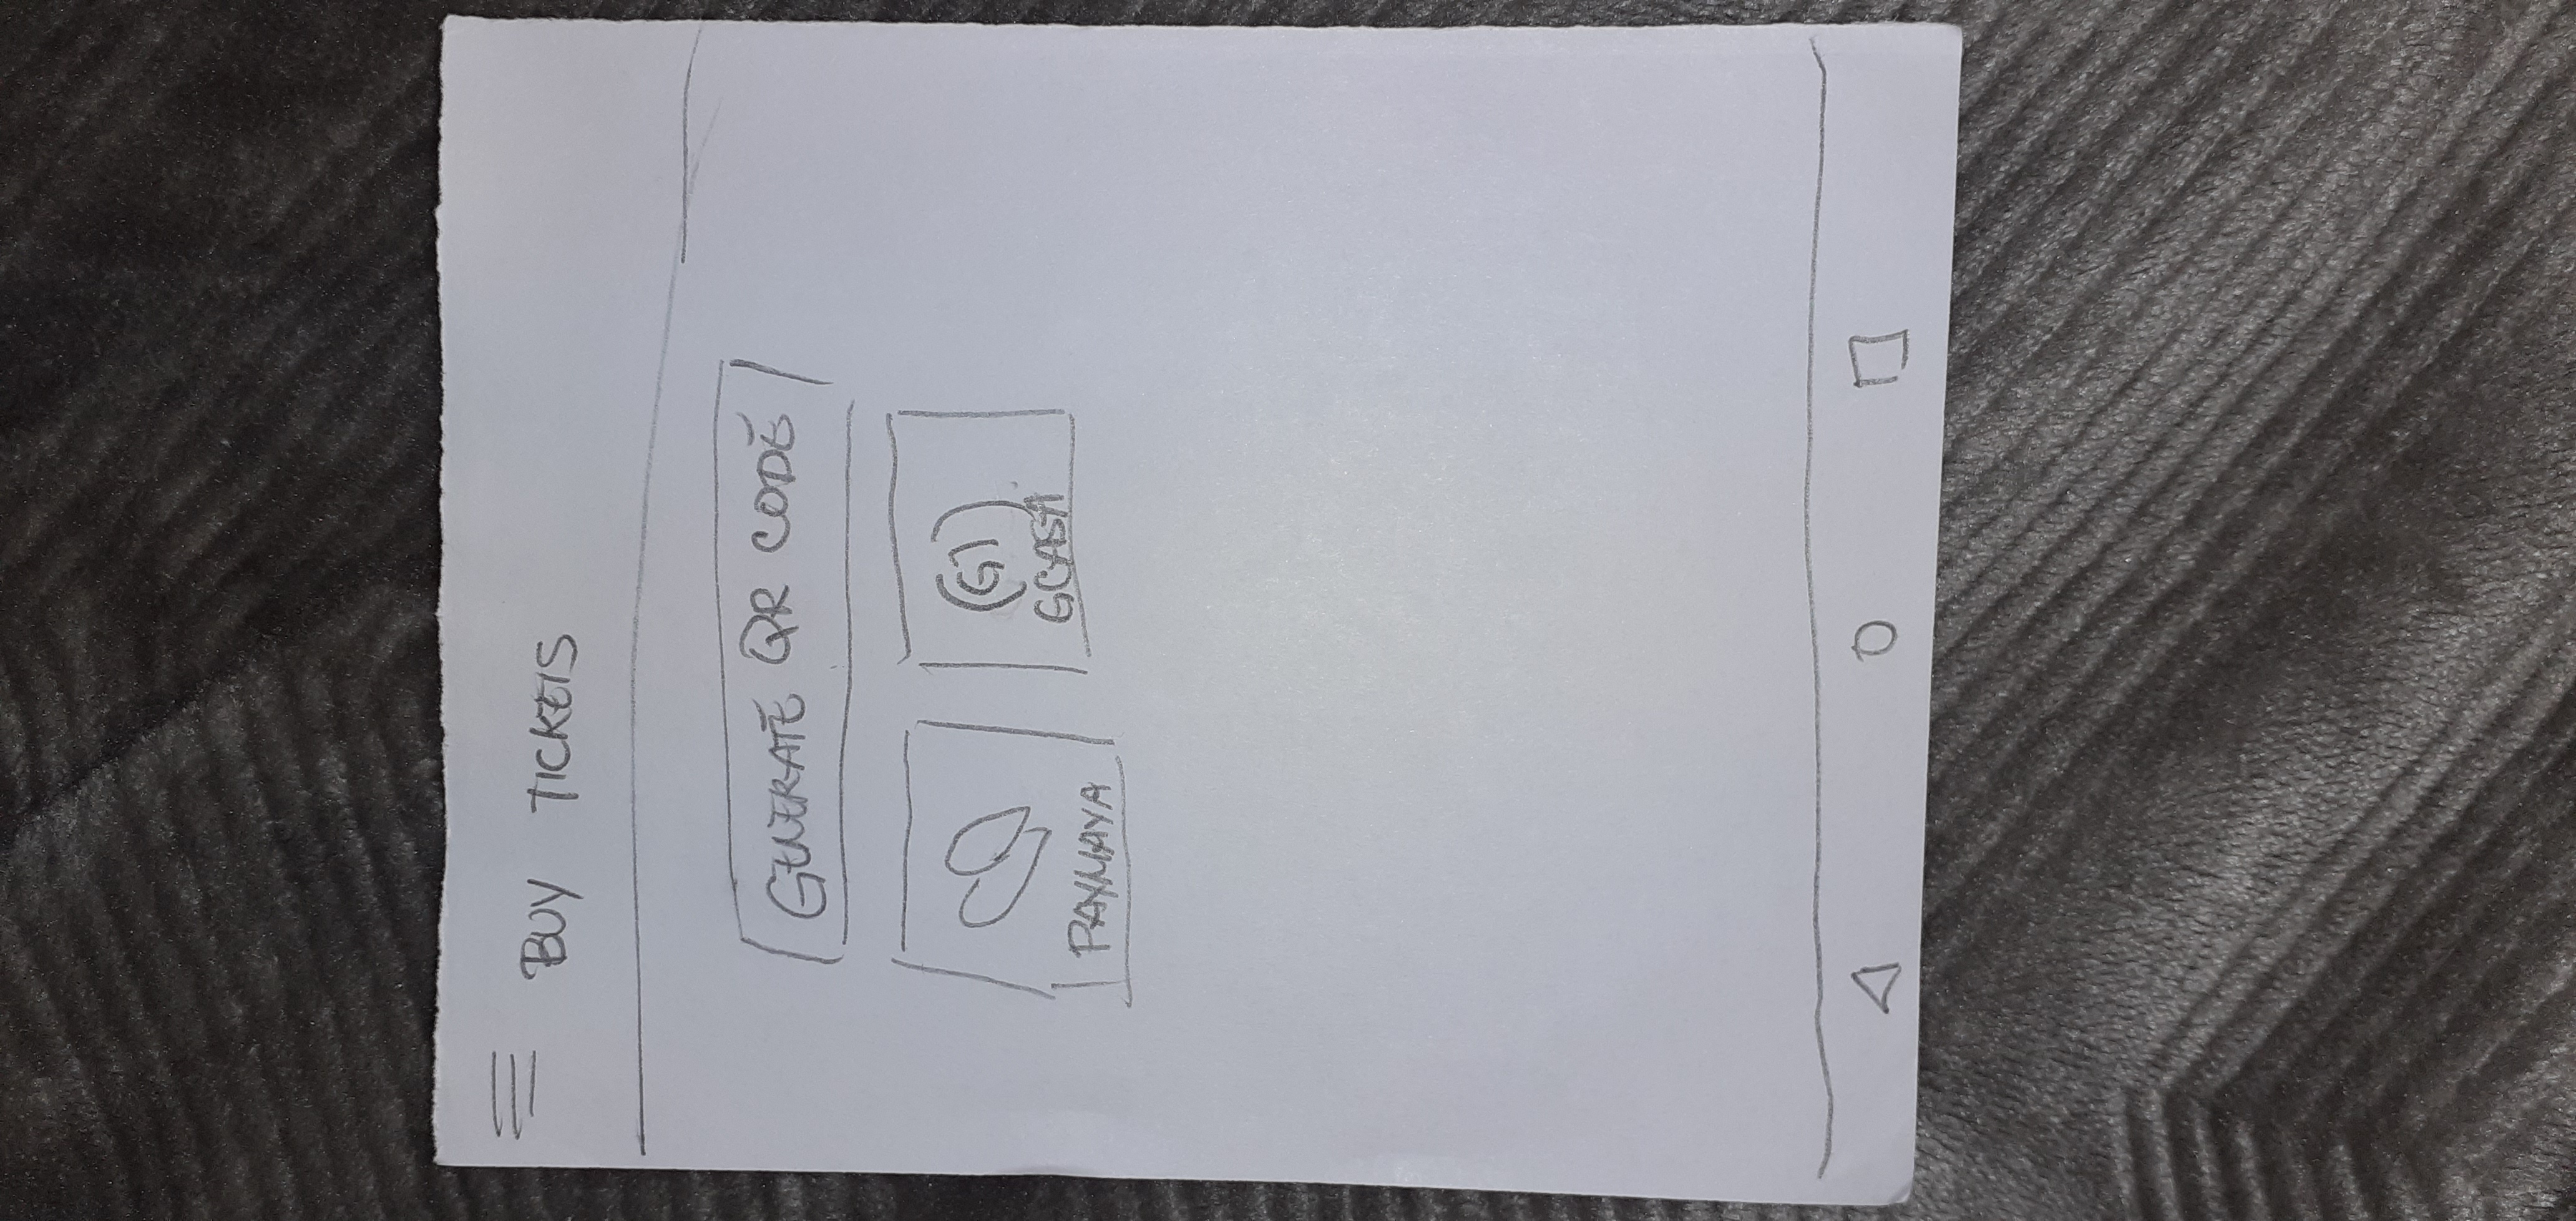 BUY TICKETS
GENERATE QR CODE
PAYMAYA
G)
GCASH